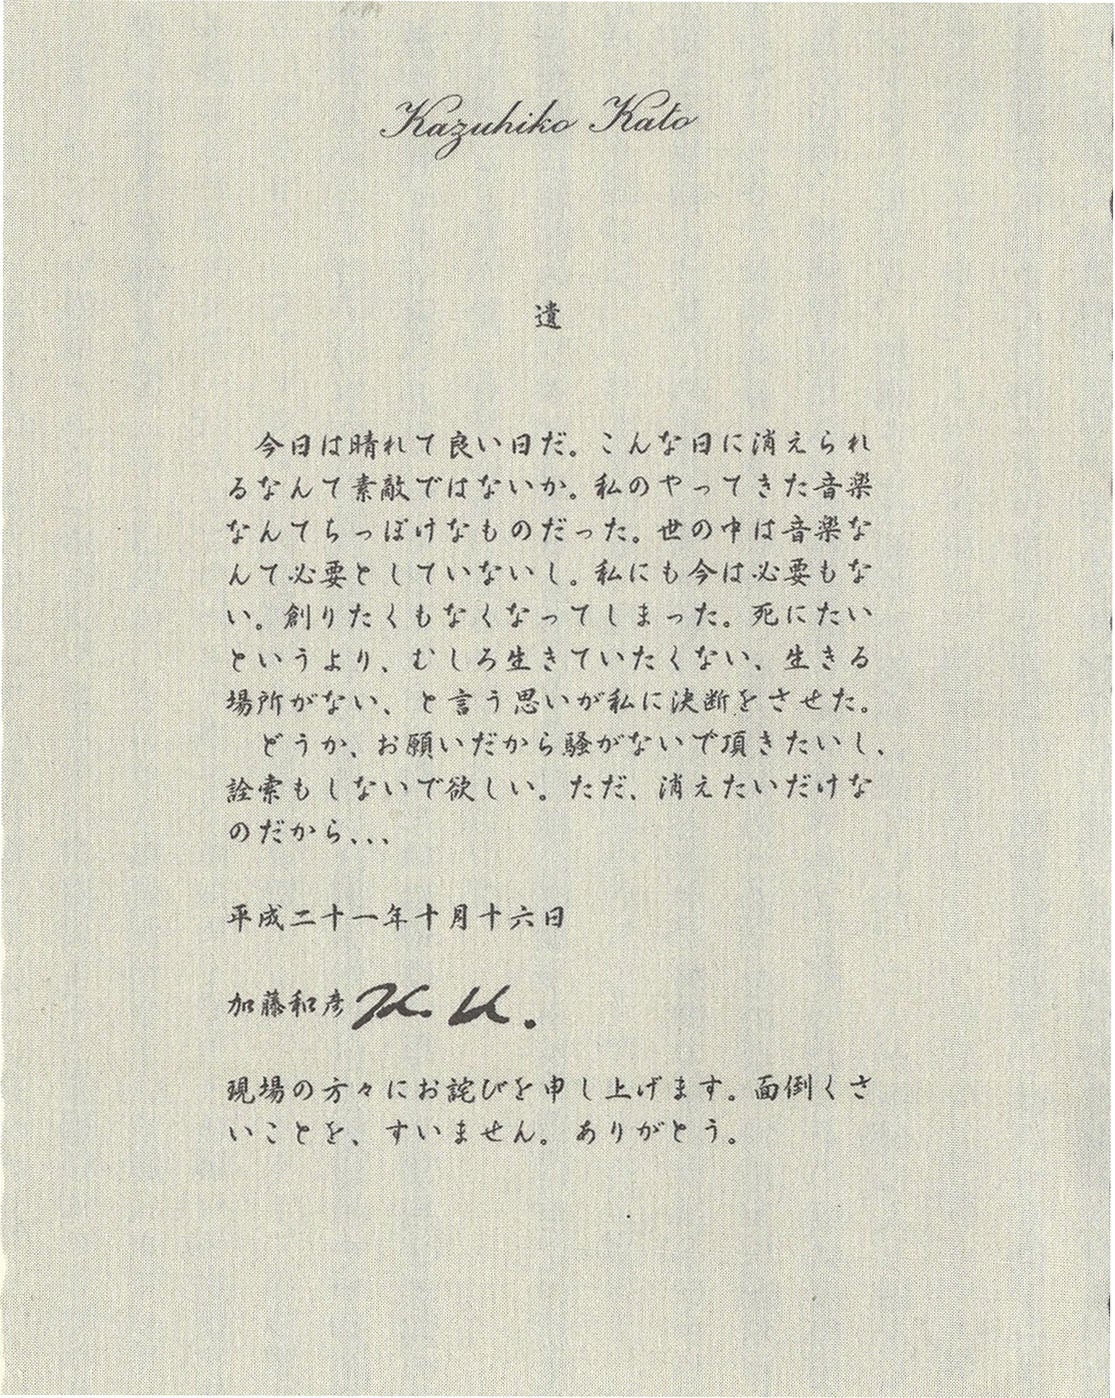 Kazuhiko Kato
遺
今日は晴れて良い日だ。こんな日に消えられ
るなんて素敵ではないか。私のやってきた音楽
なんてちっぽけなものだった。世の中は音楽な
んて必要としていないし。私にも今は必要もな
い。創りたくもなくなってしまった。死にたい
というより、むしろ生きていたくない、生きる
場所がない、と言う思いが私に決断をさせた。
どうか、お願いだから騒がないで頂きたいし、
詮索もしないで欲しい。ただ、消えたいだけな
のだから、、、
平成二十一年十月十六日
加藤和彦 K. K.
現場の方々にお詫びを申し上げます。面倒くさ
いことを、すいません。ありがとう。